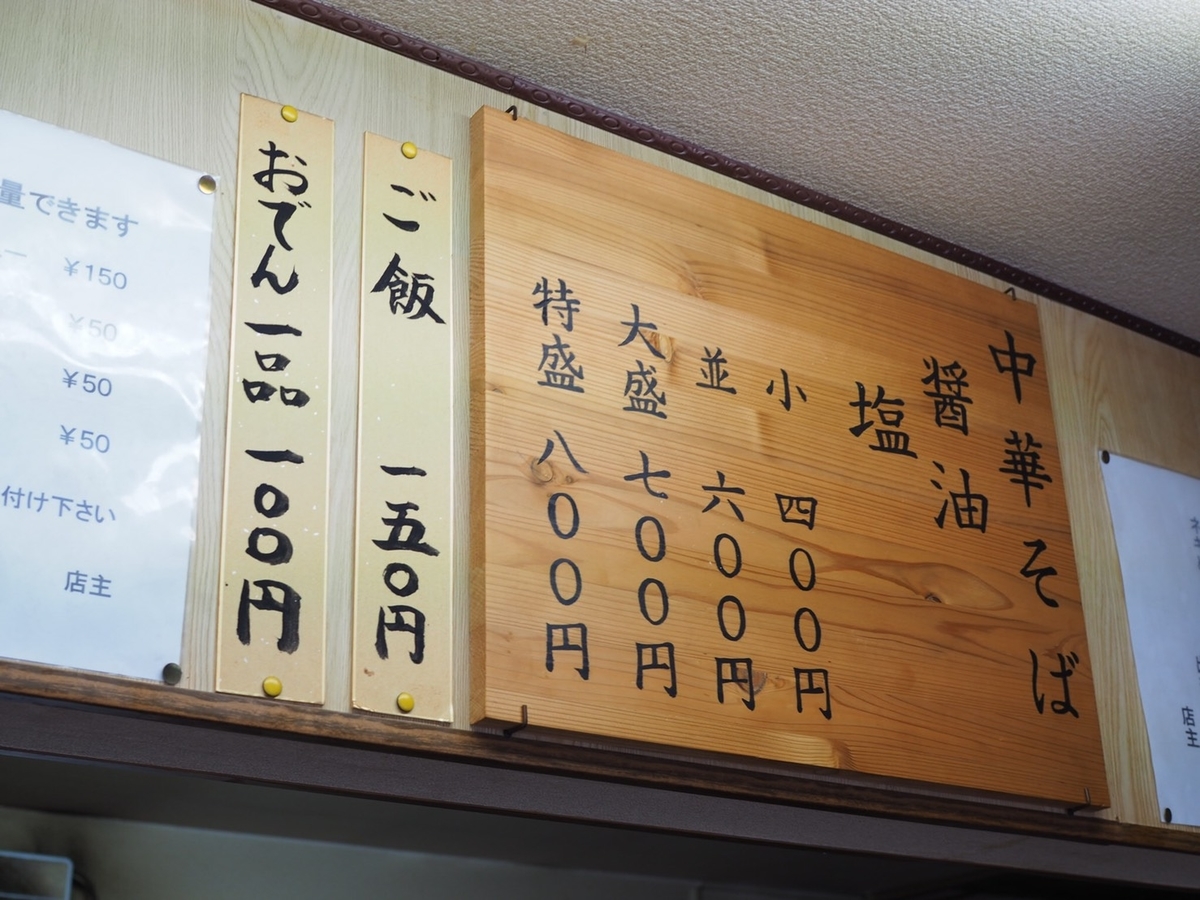 中華そば
醤油
塩
小 四〇〇円
並 六〇〇円
大盛 七〇〇円
特盛 八〇〇円
ご飯 一五〇円
おでん一品 一〇〇円
量できます
¥150
¥50
¥50
¥50
付け下さい
店主
店主